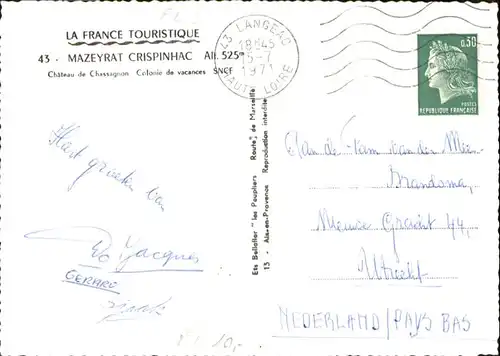 LA FRANCE TOURISTIQUE
43 - MAZEYRAT CRISPINHAC Alt. 525m
Château de Chassagnon Colonie de vacances SNCF
43 LANGEAC
18H45
5-7
1971
HAUTE LOIRE
0,30
POSTES
REPUBLIQUE FRANÇAISE
Ets Bellalier " les Peupliers Route de Marseille
13 - Aix-en-Provence Reproduction interdite
Hart groeten van
Jacques
GERARD
Aan de Fam van der
Brandsma,
Nieuwe Gracht 44,
Utrecht
NEDERLAND / PAYS BAS
10,-